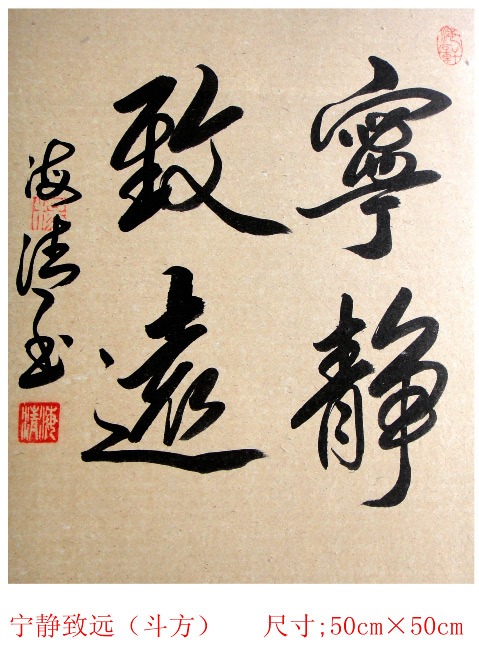 寧靜
致遠
海清书
海清
宁静致远（斗方） 尺寸;50cm×50cm